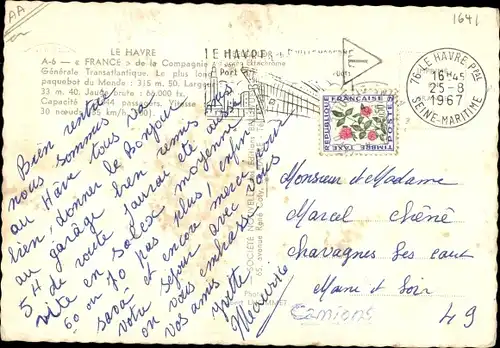 AA
1641
LE HAVRE
A-6 - « FRANCE » de la Compagnie
Générale Transatlantique. Le plus long
paquebot du Monde : 315 m. 50. Largeur
33 m. 40. Jauge brute : 66.000 tx.
Capacité 2.044 passagers. Vitesse
30 nœuds (55 km/h)
LE HAVRE
Port
76 LE HAVRE PPAL
16H45
25-8
1967
SEINE-MARITIME
REPUBLIQUE FRANÇAISE
TIMBRE TAXE
Bien rentrés
nous sommes
au Havre tous va
bien, donner le Bonjour
au garage bien remis
5H de route j'aurai été
vite en solex moyenne
60 ou 70 pas plus, enfin
sava et encore merci pour
votre séjour avec vous
on vous embrasse
vos amis
Yvette
Maurice
65, avenue René Coty
Monsieur et Madame
Marcel Chêné
Chavagnes les eaux
Maine et Loir
Camions
49